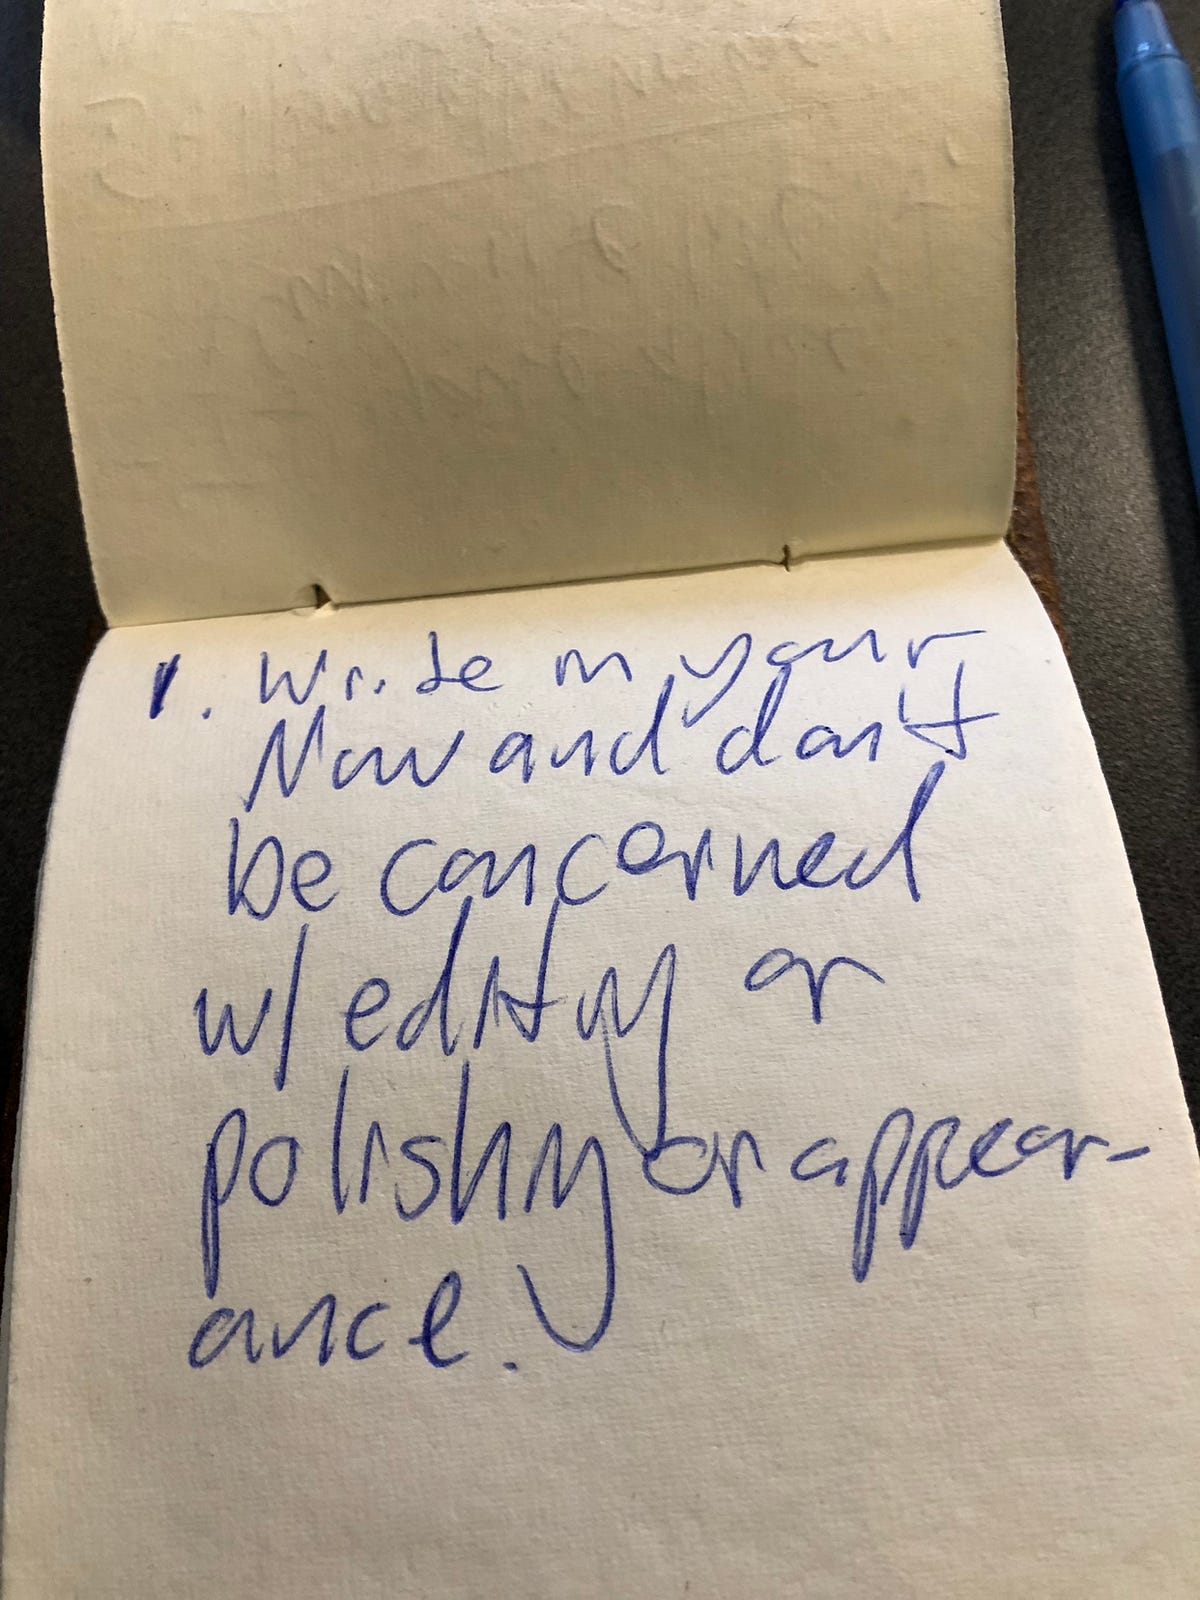 1. Write in your
Now and don't
be concerned
w/ editing or
polishing or appear-
ance.